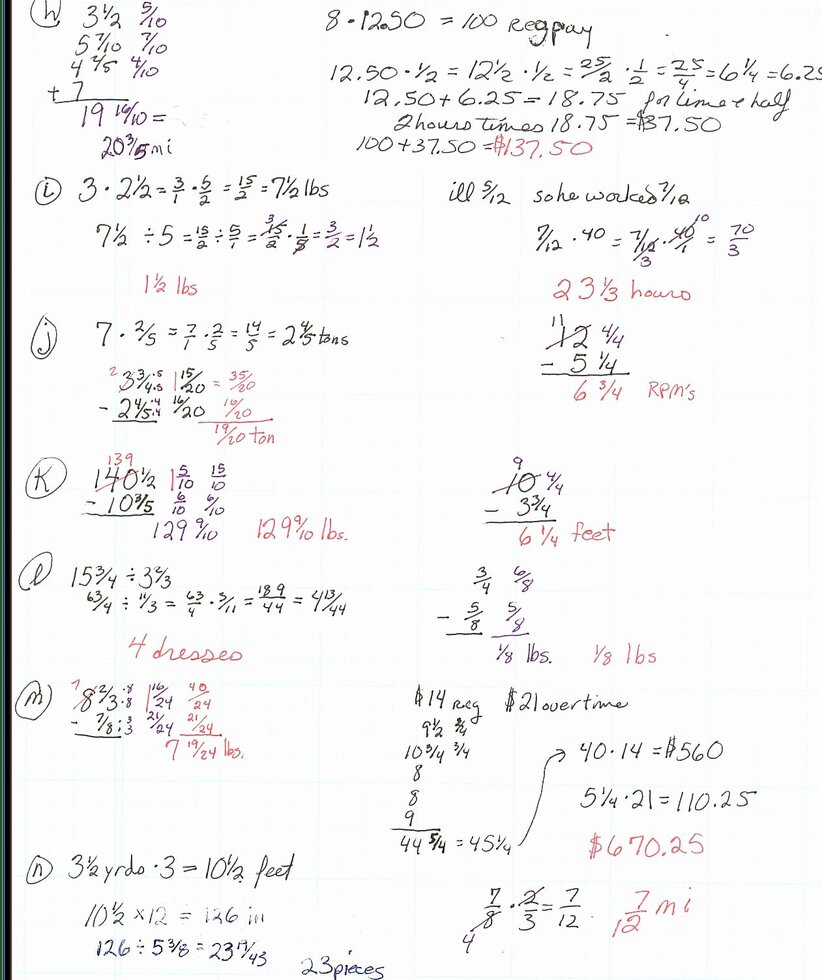 (h) 3 1/2 5/10
5 7/10 7/10
4 2/5 4/10
+ 7
19 16/10 =
20 3/5 mi
8 · 12.50 = 100 Reg pay
12.50 · 1/2 = 12 1/2 · 1/2 = 25/2 · 1/2 = 25/4 = 6 1/4 = 6.25
12.50 + 6.25 = 18.75 for time & half
2 hours times 18.75 = $37.50
100 + 37.50 = $137.50
(i) 3 · 2 1/2 = 3/1 · 5/2 = 15/2 = 7 1/2 lbs
7 1/2 ÷ 5 = 15/2 ÷ 5/1 = 3 15/2 · 1/5 = 3/2 = 1 1/2
1 1/2 lbs
ill 5/12 so he worked 7/12
7/12 · 40 = 7/12 3 · 40/1 10 = 70/3
23 1/3 hours
(j) 7 · 2/5 = 7/1 · 2/5 = 14/5 = 2 4/5 tons
2 3 3/4 ·5 ·5 1 15/20 = 35/20
- 2 4/5 ·4 ·4 16/20 16/20
19/20 ton
11 12 4/4
- 5 1/4
6 3/4 RPM's
(K) 139
140 1/2 1 5/10 15/10
- 10 3/5 6/10 6/10
129 9/10 129 9/10 lbs.
9
10 4/4
- 3 3/4
6 1/4 feet
(l) 15 3/4 ÷ 3 2/3
63/4 ÷ 11/3 = 63/4 · 3/11 = 189/44 = 4 13/44
4 dresses
3/4 6/8
- 5/8 5/8
1/8 lbs. 1/8 lbs
(m) 7 8 2/3 ·8 ·8 1 16/24 40/24
- 7/8 ·3 ·3 21/24 21/24
7 19/24 lbs.
$14 reg $21 overtime
9 1/2 2/4
10 3/4 3/4
8
8
9
44 5/4 = 45 1/4
40 · 14 = $560
5 1/4 · 21 = 110.25
$670.25
(n) 3 1/2 yrds · 3 = 10 1/2 feet
10 1/2 × 12 = 126 in
126 ÷ 5 3/8 = 23 19/43
23 pieces
7/8 4 · 2/3 = 7/12 7/12 mi